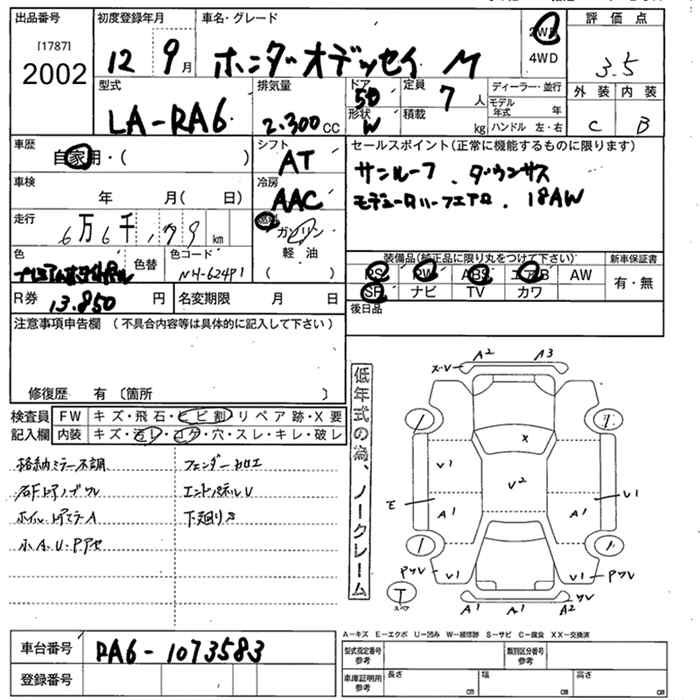 出品番号
[1787]
2002
初度登録年月
12 9月
車名・グレード
ホンダオデッセイ M
2WD
4WD
評価点
3.5
外装 内装
C B
型式
LA-RA6
排気量
2.300cc
ドア
5D
形状
W
定員
7人
積載
kg
ディーラー・並行
モデル年式 年
ハンドル 左・右
車歴
自家用・( )
シフト
AT
セールスポイント(正常に機能するものに限ります)
サンルーフ、ダウンサス
モデューロハーフエアロ、18AW
車検
年 月( 日)
冷房
AAC
走行
6万6千,179km
燃料
ガソリン
軽油
( )
色
色替
色コード
NH-624P1
装備品(純正品に限り丸をつけて下さい)
新車保証書
PS PW ABS エアB AW
SR ナビ TV カワ
有・無
R券
13.850円
名変期限 月 日
後日品
注意事項申告欄(不具合内容等は具体的に記入して下さい)
修復歴 有〔箇所 〕
検査員記入欄
FW キズ・飛石・ヒビ割・リペア跡・X要
内装 キズ・汚レ・コゲ・穴・スレ・キレ・破レ
格納ミラー不調
フェンダー加工
エンドパネルU
ホイル
A
下廻りS
小A.U.Pアセ
低年式の為、ノークレーム
A2 A3
X
U1
U2
E
A1
A1
U1
U1
U1
A1
A1
A2
T
スペア
A-キズ E-エクボ U-凹み W-補修跡 S-サビ C-腐食 XX-交換済
車台番号
RA6-1073583
登録番号
型式指定番号
参考
類別区分番号
参考
車庫証明用
参考
長さ cm
幅 cm
高さ cm